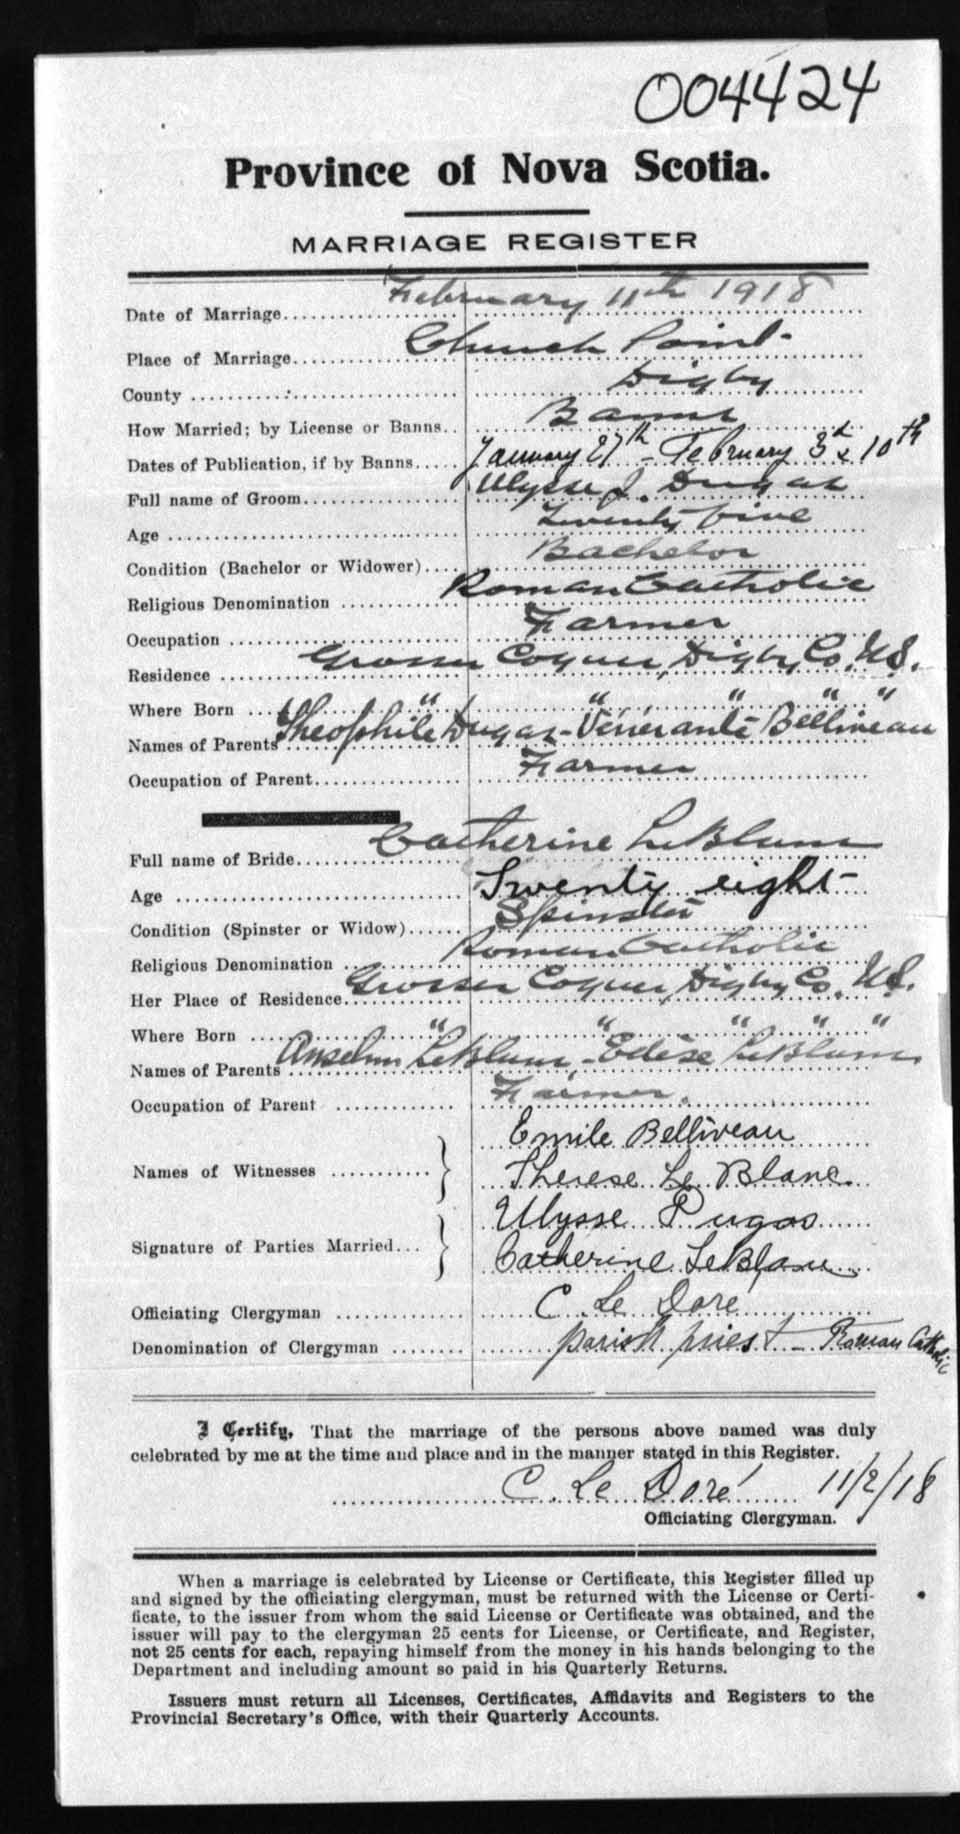 004424
Province of Nova Scotia.
MARRIAGE REGISTER
Date of Marriage February 11th 1918
Place of Marriage Church Point
County Digby
How Married; by License or Banns Banns
Dates of Publication, if by Banns January 27th - February 3d & 10th
Full name of Groom Ulysse J. Dugas
Age Twenty five
Condition (Bachelor or Widower) Bachelor
Religious Denomination Roman Catholic
Occupation Farmer
Residence Grosses Coques, Digby Co. N.S.
Where Born " " " " "
Names of Parents Theophile Dugas - Vénérante Belliveau
Occupation of Parent Farmer
Full name of Bride Catherine LeBlanc
Age Twenty eight
Condition (Spinster or Widow) Spinster
Religious Denomination Roman Catholic
Her Place of Residence Grosses Coques, Digby Co. N.S.
Where Born " " " " "
Names of Parents Anselm LeBlanc - Edèse LeBlanc
Occupation of Parent Farmer.
Names of Witnesses } Emile Belliveau
Therese Le Blanc
Signature of Parties Married } Ulysse Dugas
Catherine LeBlanc
Officiating Clergyman C. Le Doré
Denomination of Clergyman parish priest - Roman Catholic
I Certify, That the marriage of the persons above named was duly
celebrated by me at the time and place and in the manner stated in this Register.
C. Le Doré 11/2/18
Officiating Clergyman.
When a marriage is celebrated by License or Certificate, this Register filled up
and signed by the officiating clergyman, must be returned with the License or Certi-
ficate, to the issuer from whom the said License or Certificate was obtained, and the
issuer will pay to the clergyman 25 cents for License, or Certificate, and Register,
not 25 cents for each, repaying himself from the money in his hands belonging to the
Department and including amount so paid in his Quarterly Returns.
Issuers must return all Licenses, Certificates, Affidavits and Registers to the
Provincial Secretary's Office, with their Quarterly Accounts.